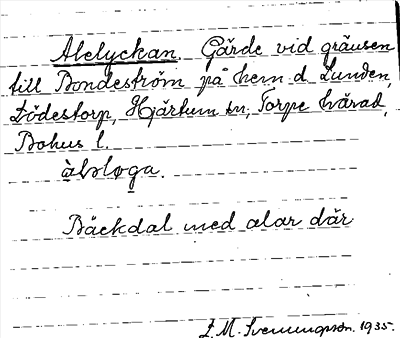 Alelyckan. Gärde vid gränsen
till Bondeström på hem d. Lunden,
Dödestorp, Hjärtum sn, Torpe härad,
Bohus l.
Bäckdal med alar där
M. Svenungsson. 1935.